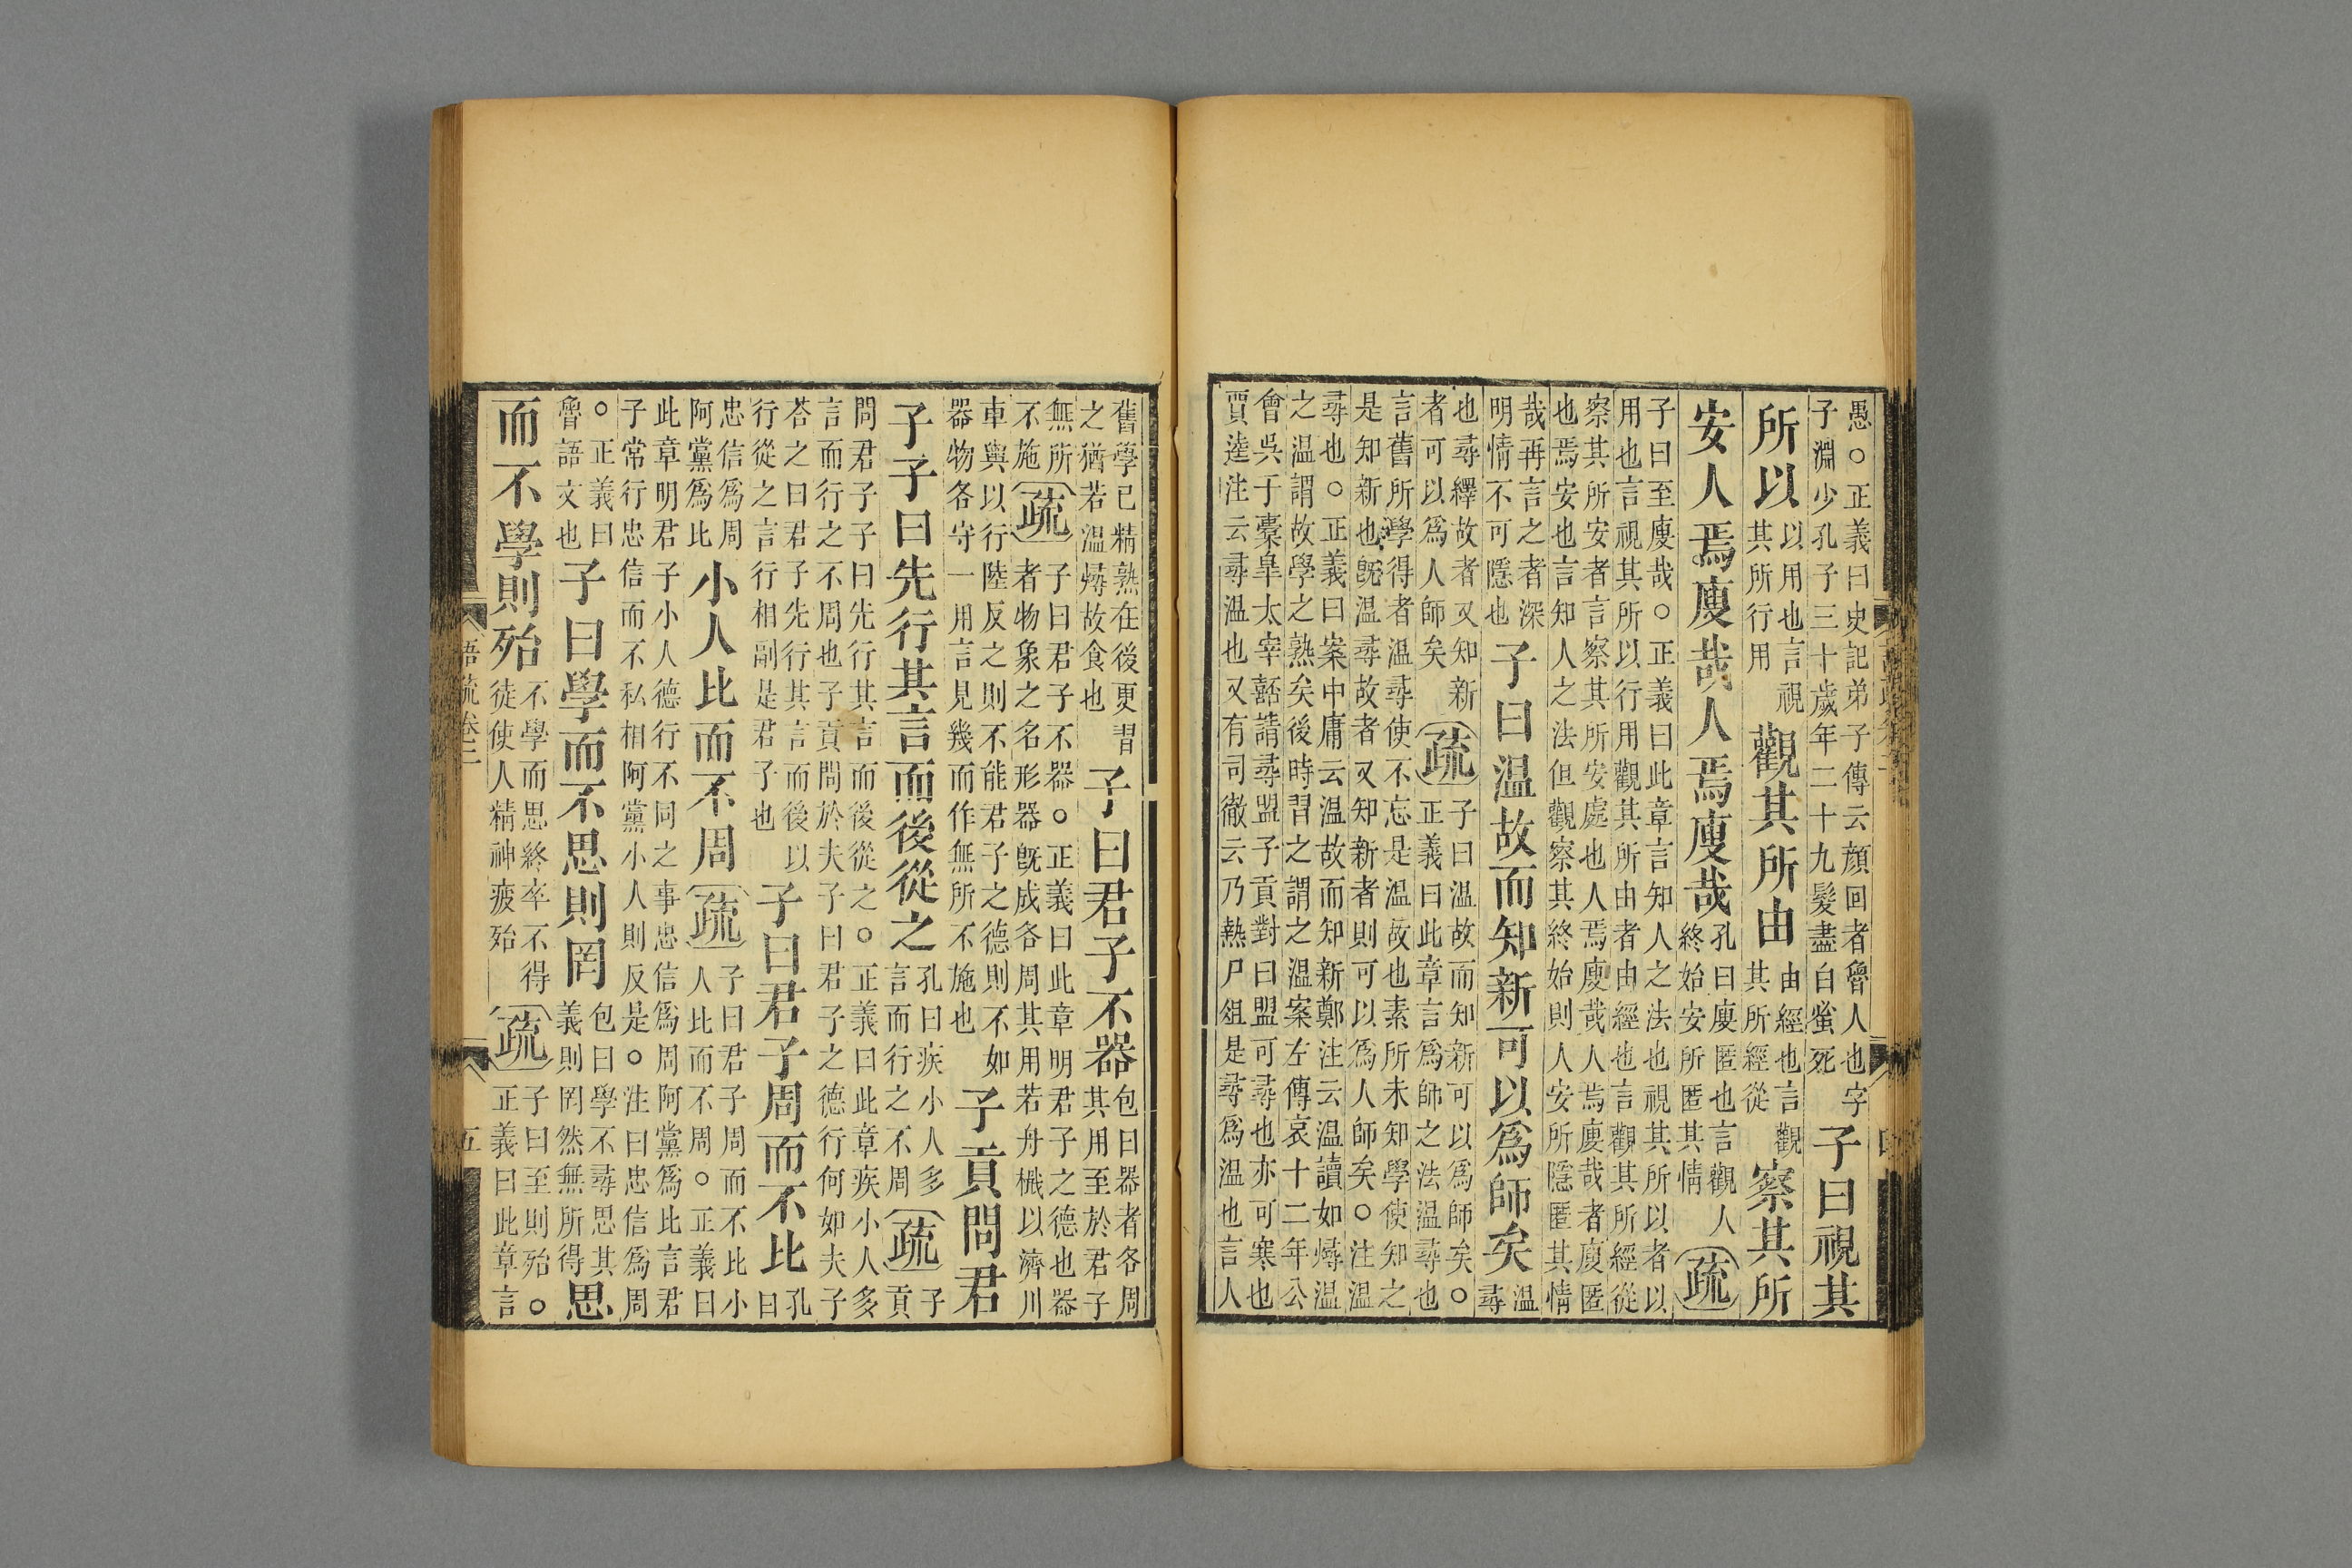 愚○正義曰史記弟子傳云顏回者魯人也字
子淵少孔子三十歲年二十九髮盡白蚤死
子曰視其
所以
以用也言視
其所行用
觀其所由
由經也言觀
其所經從
察其所
安人焉廋哉人焉廋哉
孔曰廋匿也言觀人
終始安所匿其情
疏
子曰至廋哉○正義曰此章言知人之法也視其所以者以
用也言視其所以行用觀其所由者由經也言觀其所經從
察其所安者言察其所安處也人焉廋哉人焉廋哉者廋匿
也焉安也言知人之法但觀察其終始則人安所隱匿其情
哉再言之者深
明情不可隱也
子曰温故而知新可以爲師矣
温
尋
也尋繹故者又知新
者可以爲人師矣
疏
子曰温故而知新可以爲師矣○
正義曰此章言爲師之法温尋也
言舊所學得者温尋使不忘是温故也素所未知學使知之
是知新也旣温尋故者又知新者則可以爲人師矣○注温
尋也○正義曰案中庸云温故而知新鄭注云温讀如燖温
之温謂故學之熟矣後時習之謂之温案左傳哀十二年公
會吳于橐臯太宰嚭請尋盟子貢對曰盟可尋也亦可寒也
賈逵注云尋温也又有司徹云乃熱尸俎是尋爲温也言人
舊學已精熟在後更習
之猶若温燖故食也
子曰君子不器
包曰器者各周
其用至於君子
無所
不施
疏
子曰君子不器○正義曰此章明君子之德也器
者物象之名形器旣成各周其用若舟檝以濟川
車輿以行陸反之則不能君子之德則不如
器物各守一用言見幾而作無所不施也
子貢問君
子子曰先行其言而後從之
孔曰疾小人多
言而行之不周
疏
子
貢
問君子子曰先行其言而後從之○正義曰此章疾小人多
言而行之不周也子貢問於夫子曰君子之德行何如夫子
荅之曰君子先行其言而後以
行從之言行相副是君子也
子曰君子周而不比
孔
曰
忠信爲周
阿黨爲比
小人比而不周
疏
子曰君子周而不比小
人比而不周○正義曰
此章明君子小人德行不同之事忠信爲周阿黨爲比言君
子常行忠信而不私相阿黨小人則反是○注曰忠信爲周
○正義曰
魯語文也
子曰學而不思則罔
包曰學不尋思其
義則罔然無所得
思
而不學則殆
不學而思終卒不得
徒使人精神疲殆
疏
子曰至則殆○
正義曰此章言
語疏卷二
五